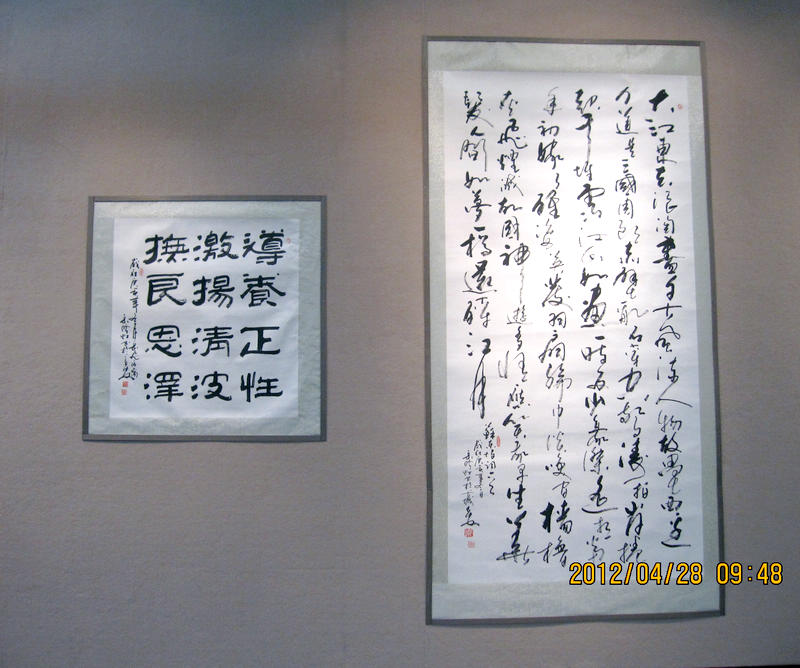 導養正性
激揚清波
撫良恩澤
大江東去浪淘盡千古風流人物故壘西邊
人道是三國周郎赤壁亂石穿空驚濤拍岸捲
起千堆雪江山如畫一時多少豪傑遙想當
年初嫁了雄姿英發羽扇綸巾談笑間檣櫓
灰飛煙滅故國神遊多情應笑我早生華
髮人間如夢一樽還酹江月
蘇東坡詞一首
2012/04/28 09:48